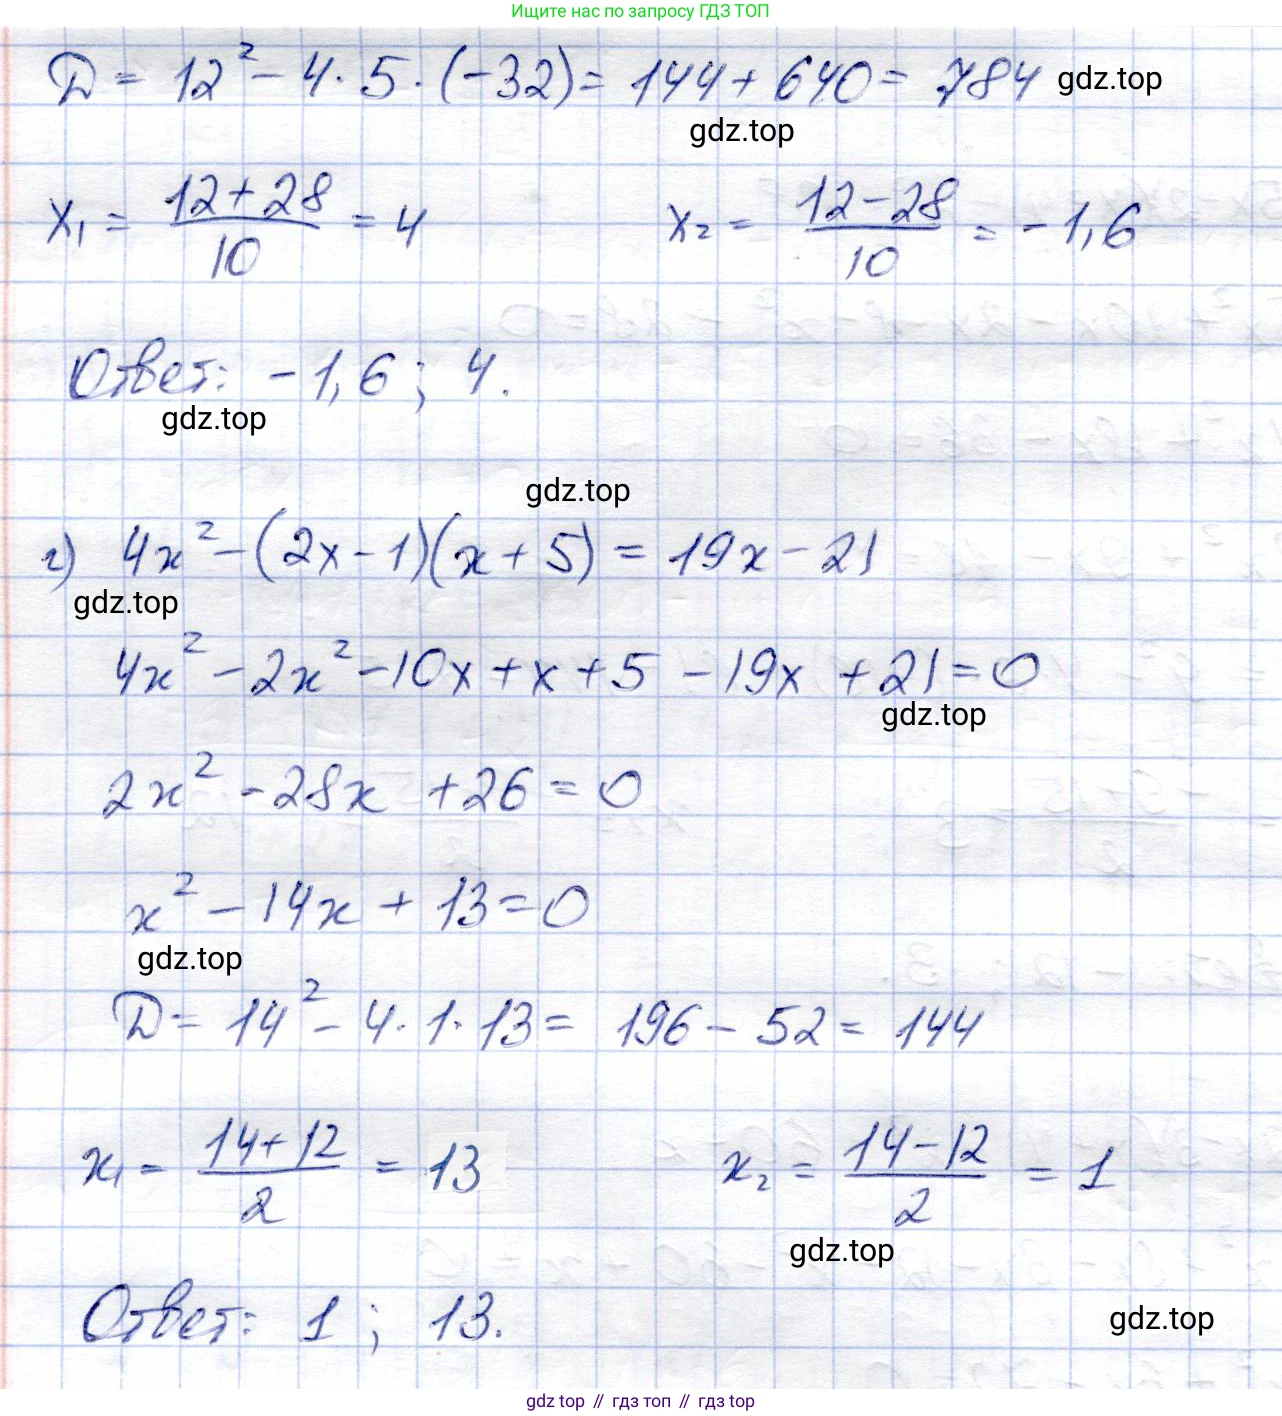 Ищите нас по запросу ГДЗ ТОП
D = 12² - 4 · 5 · (-32) = 144 + 640 = 784 gdz.top
gdz.top
x₁ = (12 + 28)/10 = 4 x₂ = (12 - 28)/10 = -1,6
Ответ: -1,6 ; 4.
gdz.top
gdz.top
г) 4x² - (2x - 1)(x + 5) = 19x - 21
gdz.top
4x² - 2x² - 10x + x + 5 - 19x + 21 = 0
gdz.top
2x² - 28x + 26 = 0
x² - 14x + 13 = 0
gdz.top
D = 14² - 4 · 1 · 13 = 196 - 52 = 144
x₁ = (14 + 12)/2 = 13 x₂ = (14 - 12)/2 = 1
gdz.top
Ответ: 1 ; 13.
gdz.top
gdz top // гдз топ // гдз top